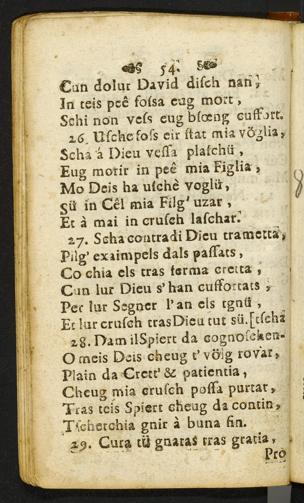 54.
Cun dolur David disch nan;
In teis peê fossa eug mort,
Schi non vess eug bsœng cuffort.
26. Uschefoss eir stat mia vöglia,
Scha á Dieu vessa plaschü,
Eug morir in peê mia Figlia,
Mo Deis ha uschè voglü,
Sü in Cêl mia Filg' uzar,
Et à mai in crusch laschar.
27. Scha contradi Dieu trametta,
Pilg' exaimpels dals passats,
Co chia els tras ferma cretta,
Cun lur Dieu s'han cuffortats,
Per lur Segner l'an els tgnü,
Et lur crusch tras Dieu tut sü. [tscha
28. Dam il Spiert da cognoschen-
O meis Deis cheug t'völg rovar,
Plain da Crett' & patientia,
Cheug mia crusch possa purtar,
Tras teis Spiert cheug da contin,
Tscherchia gnir à buna fin.
29. Cura tü gnaras tras gratia,
Pro